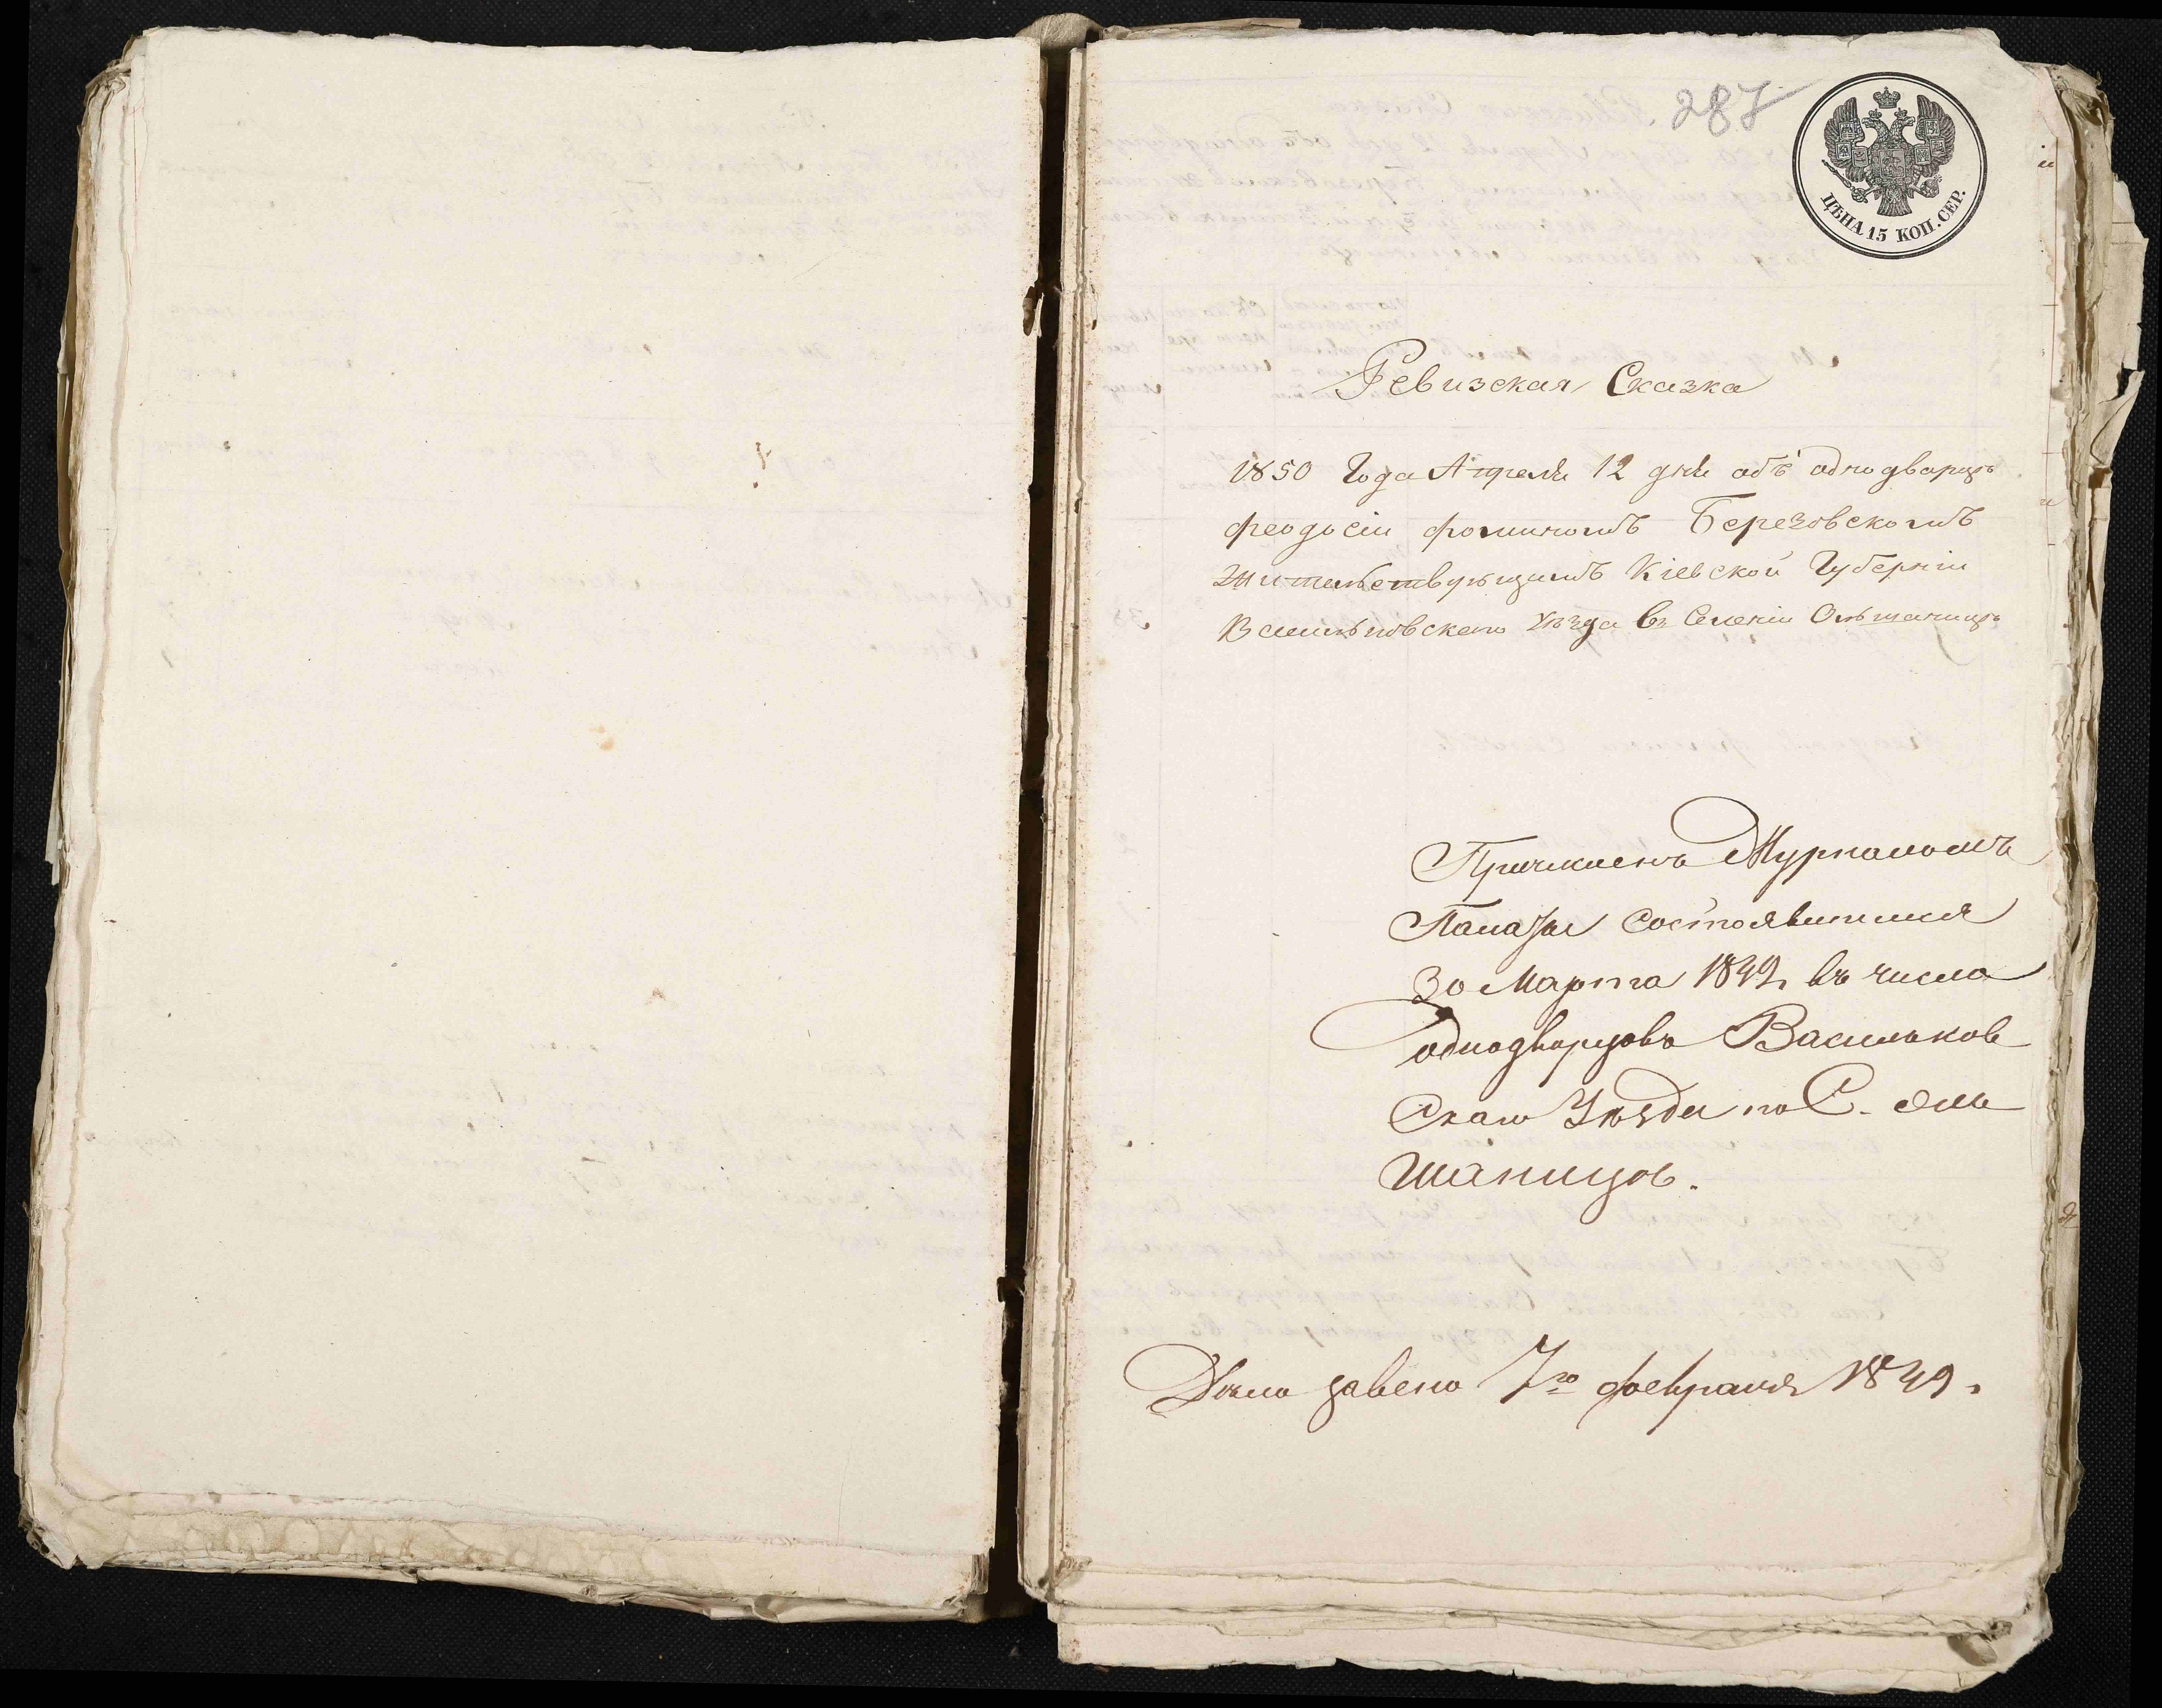 287
ЦѢНА 15 КОП. СЕР.
Ревизская Сказка
1850 Года Апреля 12 дня объ однодворцѣ
Феодосіи Фоминомъ Березовскомъ
Жительствующимъ Кіевской Губерніи
Васильковскаго Уѣзда въ Селеніи Ольшаницѣ
Причисленъ Журналомъ
Палаты Состоявшимся
30 Марта 1849, въ число
однодворцовъ Васильков
Скаго Уѣзда по С. Оль
шаницѣ.
Дѣло заведено 7го февраля 1849.